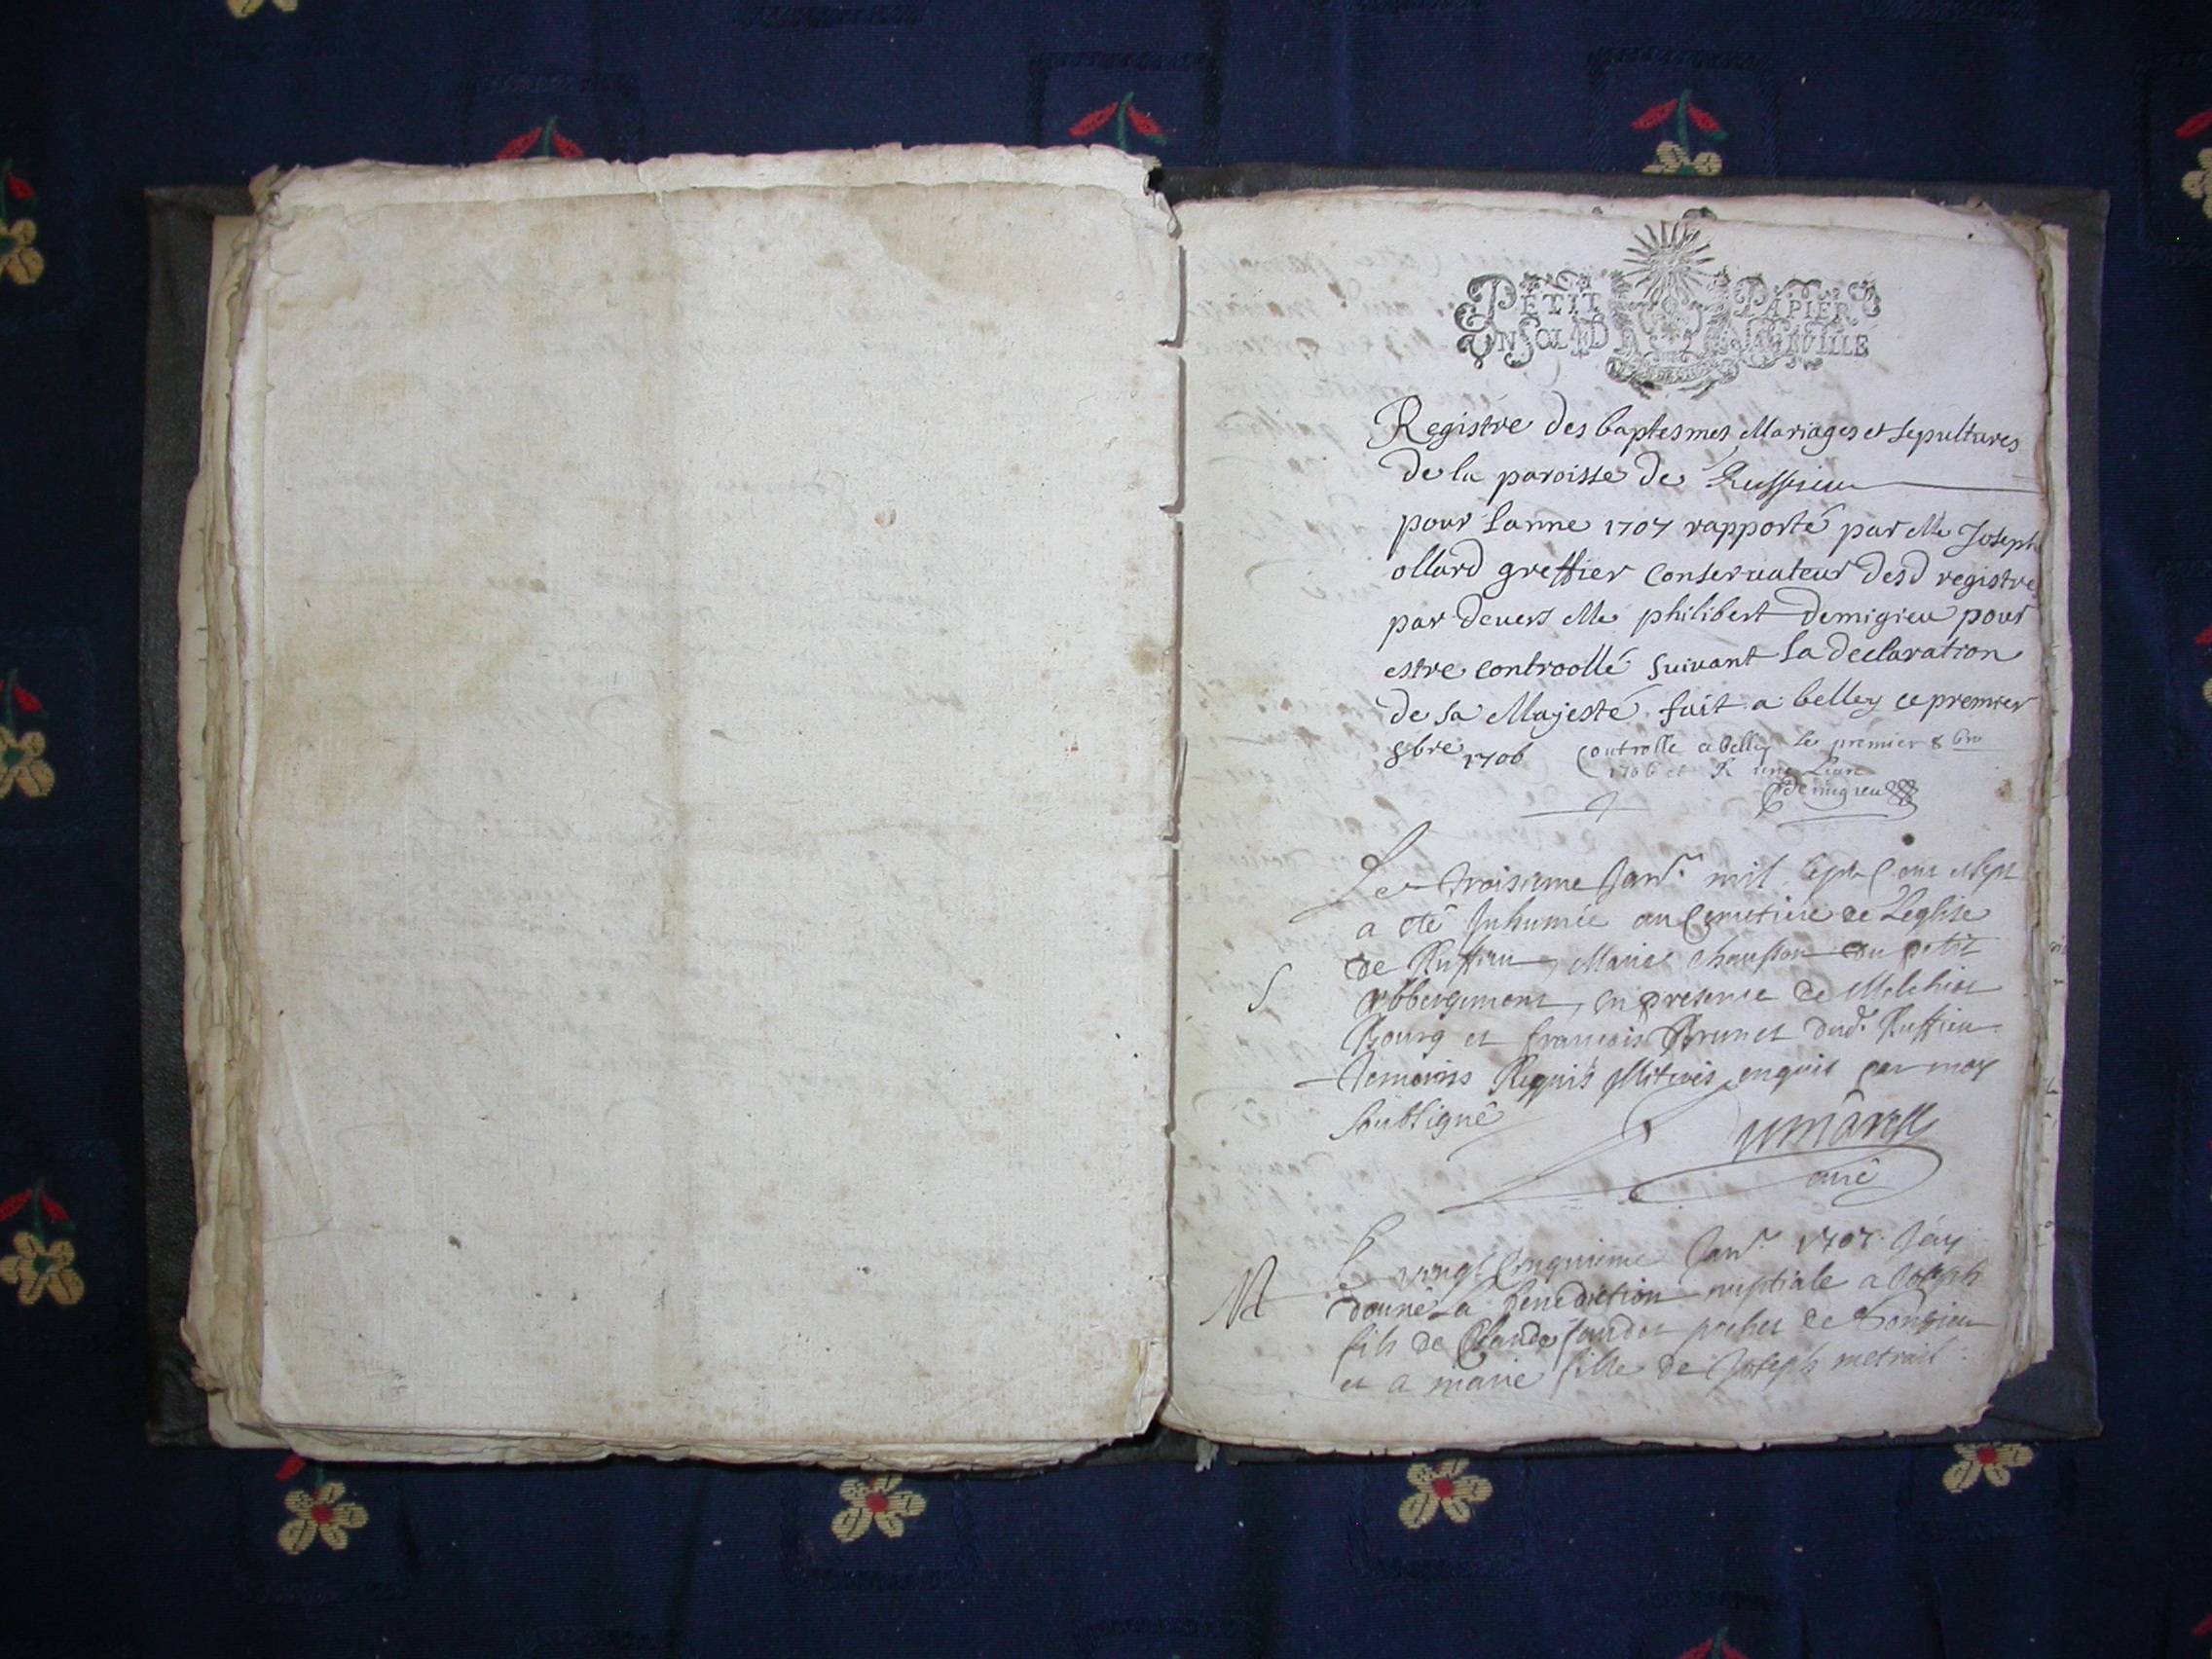 PETIT PAPIER
UN SOL LA FEUILLE
Registre des baptesmes Mariages et sepultures
de la paroisse de Ruffieu
pour Lanne 1707 rapporté par Me Joseph
ollard greffier Conseruateur desd registre
par deuers Me philibert demigieu pour
estre controollé suivant La declaration
de sa Majesté fait a belley ce premier
8bre 1706
Controlle a Belley le premier 8bre
1706 et R
Demigieu
Le troisieme Janr. mil sept Cent et sept
a eté Inhumée au Cemetiere de Leglise
de Ruffieu Marie chausson du petit
S
abbergement, en presence de Melchior
Bourg et francois Brunet dud. Ruffieu
temoins Requis Illiteres enquis par moy
soubsigné
curé
Le vingt Cinquieme Janr. 1707 J'ay
M
donné La benediction nuptiale a Joseph
fils de Claude de
et a marie fille de Joseph metrail